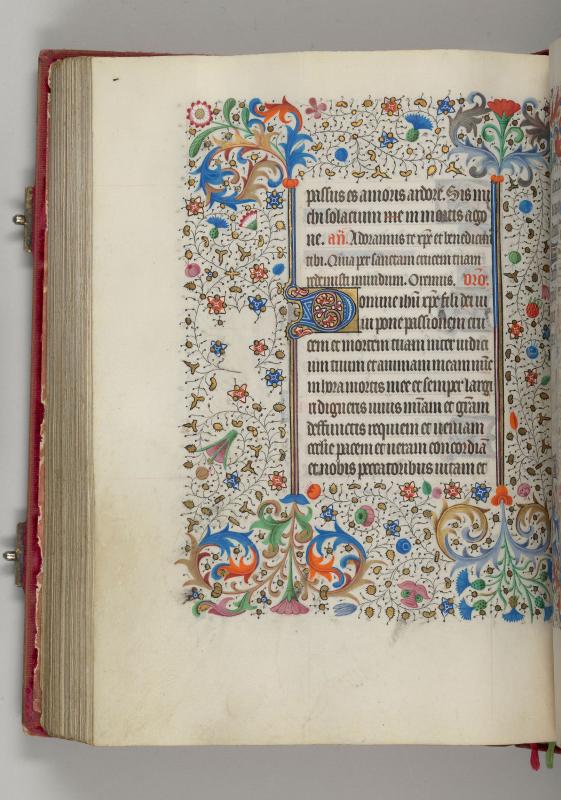 passus es amoris ardore. Sis mi
chi solacium me in mortis ago
ne. añ. Adoramus te xp̄e et benedicim᷒
tibi. Quia per sanctam crucem tuam
redemisti mundum. Oremus. orō.
Domine ihū xp̄e fili dei ui
ui pone passionem cru
cem et mortem tuam inter iudici
um tuum et animam meam nūc
in hora mortis mee et semper largi
ri digneris uiuis m̄iam et grām
deffunctis requiem et ueniam
ecclie pacem et ueram concordiā
et nobis peccatoribus uitam et